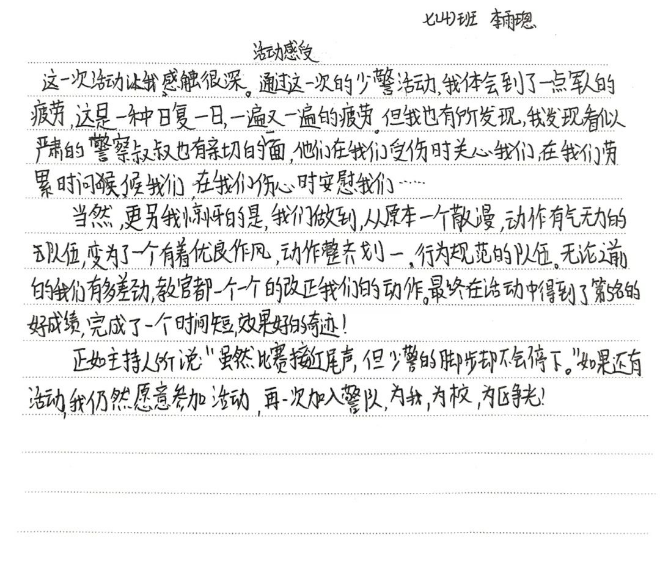 七(4)班 李雨璁
活动感受
这一次活动让我感触很深。通过这一次的少警活动,我体会到了一点军人的
疲劳,这是一种日复一日,一遍又一遍的疲劳。但我也有所发现,我发现看似
严肃的警察叔叔也有亲切的面,他们在我们受伤时关心我们,在我们劳
累时问候候我们,在我们伤心时安慰我们……
当然,更另我惊呀的是,我们做到,从原本一个散漫,动作有气无力的
队伍,变为了一个有着优良作风,动作整齐划一,行为规范的队伍。无论之前
的我们有多差劲,教官都一个一个的改正我们的动作。最终在活动中得到了第5名的
好成绩,完成了一个时间短,效果好的奇迹!
正如主持人所说"虽然比赛接近尾声,但少警的脚步却不会停下。"如果还有
活动,我仍然愿意参加活动,再一次加入警队,为我,为校,为区争光!